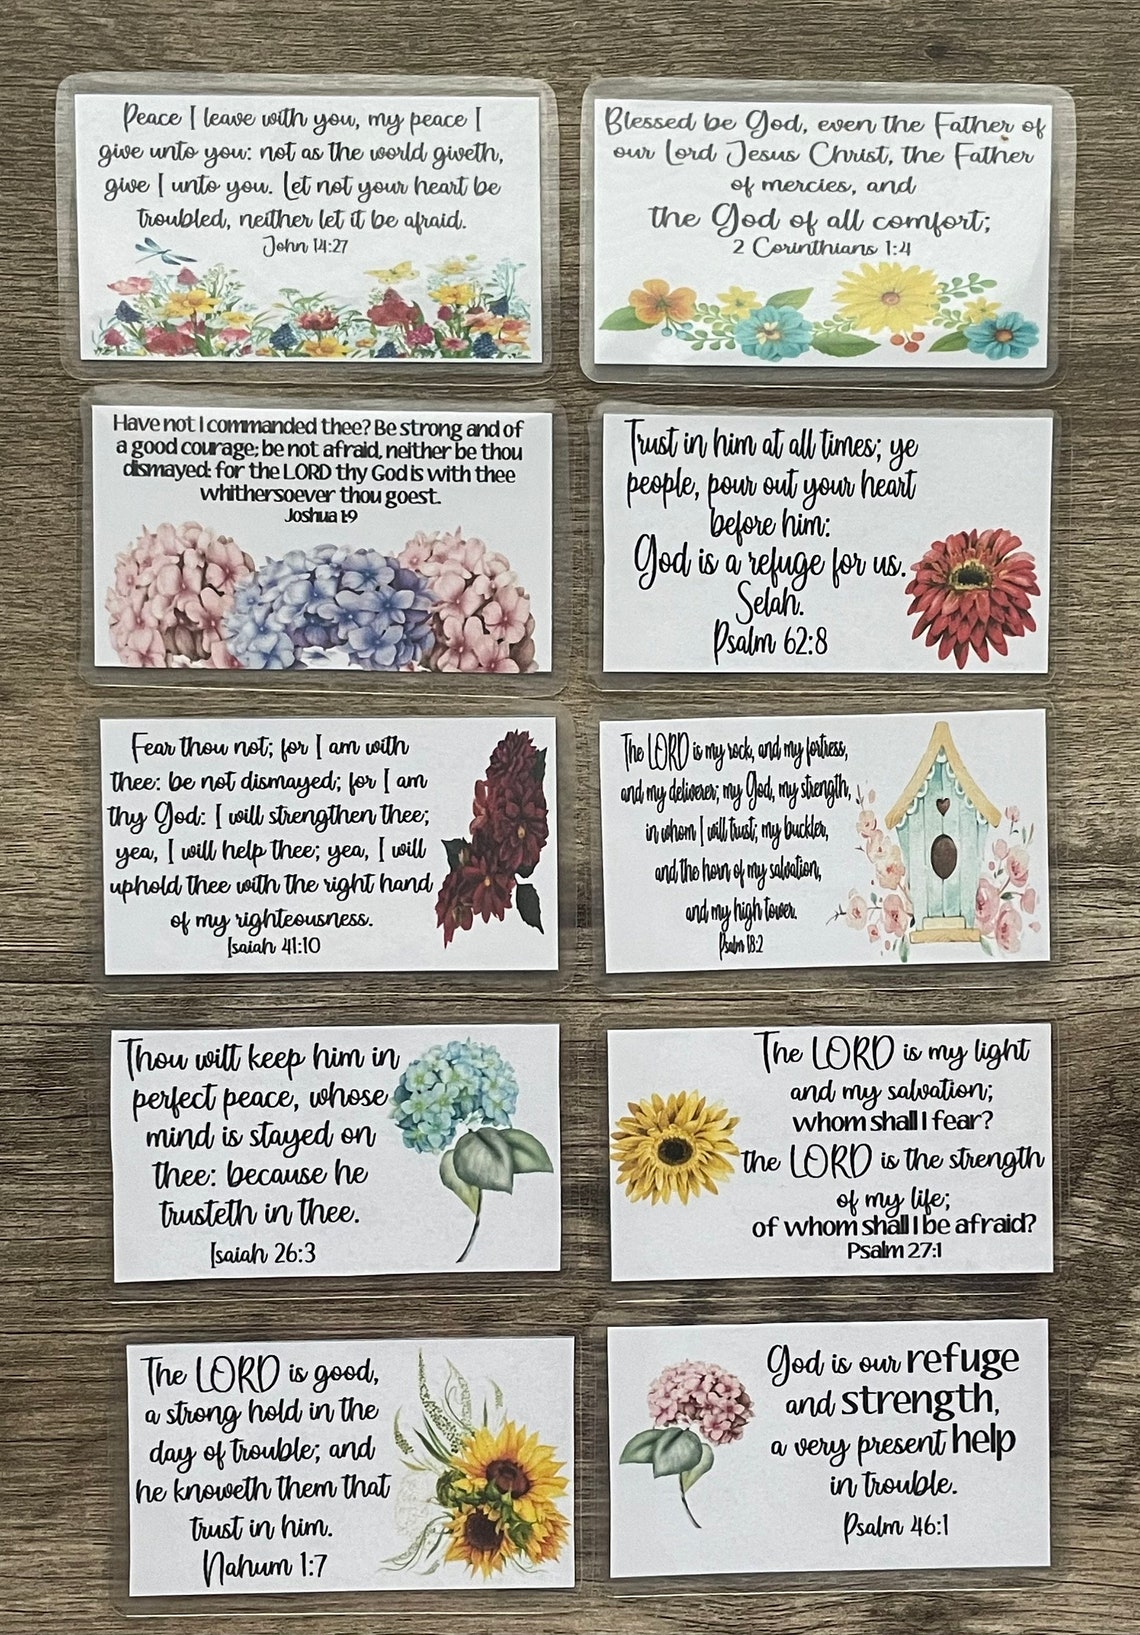 Peace I leave with you, my peace I
give unto you: not as the world giveth,
give I unto you. Let not your heart be
troubled, neither let it be afraid.
John 14:27
Blessed be God, even the Father of
our Lord Jesus Christ, the Father
of mercies, and
the God of all comfort;
2 Corinthians 1:4
Have not I commanded thee? Be strong and of
a good courage; be not afraid, neither be thou
dismayed: for the LORD thy God is with thee
whithersoever thou goest.
Joshua 1:9
Trust in him at all times; ye
people, pour out your heart
before him:
God is a refuge for us.
Selah.
Psalm 62:8
Fear thou not; for I am with
thee: be not dismayed; for I am
thy God: I will strengthen thee;
yea, I will help thee; yea, I will
uphold thee with the right hand
of my righteousness.
Isaiah 41:10
The LORD is my rock, and my fortress,
and my deliverer; my God, my strength,
in whom I will trust; my buckler,
and the horn of my salvation,
and my high tower.
Psalm 18:2
Thou wilt keep him in
perfect peace, whose
mind is stayed on
thee: because he
trusteth in thee.
Isaiah 26:3
The LORD is my light
and my salvation;
whom shall I fear?
the LORD is the strength
of my life;
of whom shall I be afraid?
Psalm 27:1
The LORD is good,
a strong hold in the
day of trouble; and
he knoweth them that
trust in him.
Nahum 1:7
God is our refuge
and strength,
a very present help
in trouble.
Psalm 46:1